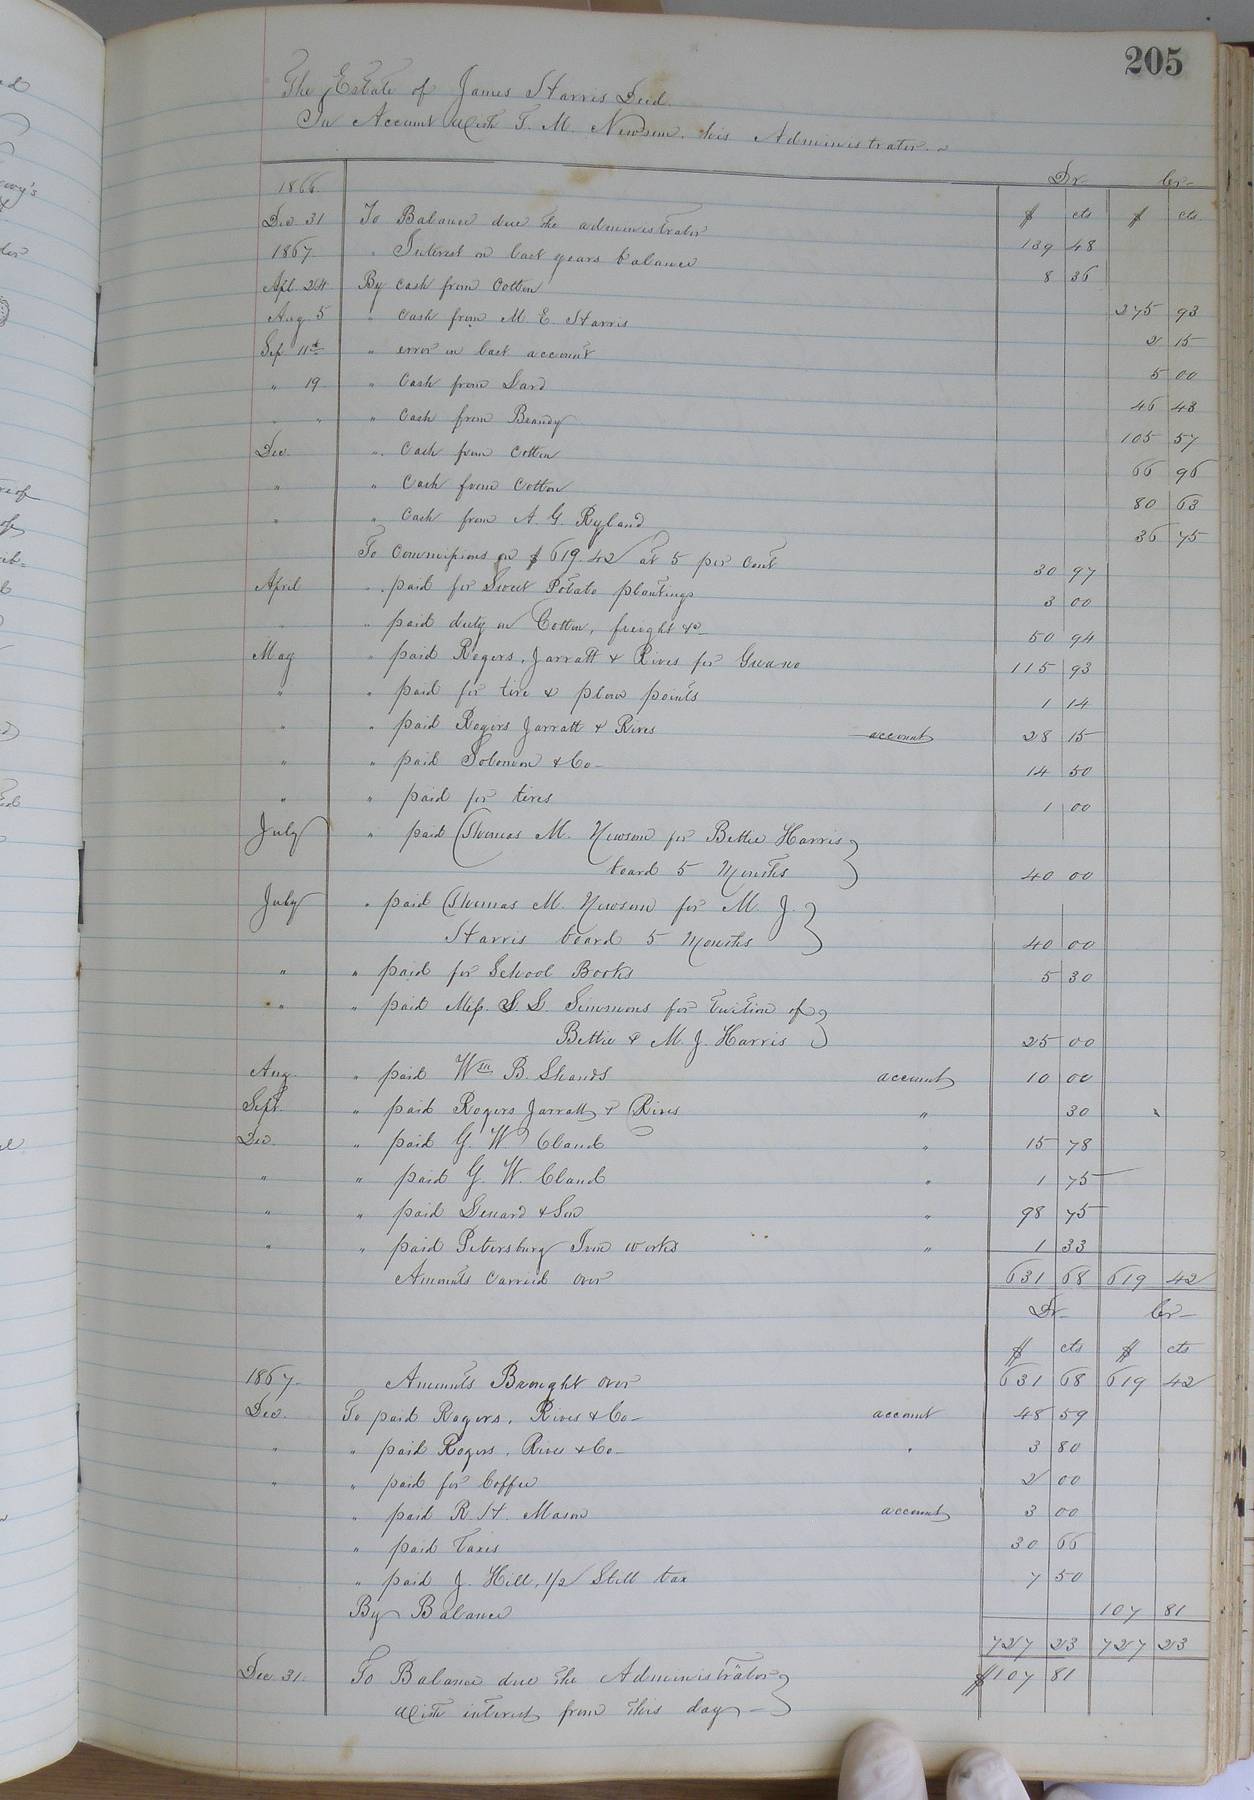 205
The Estate of James Harris Decd.
In Account with T. M. Newsom. his Administrator.
Dr Cr
1866. $ cts $ cts
Dec 31 To Balance due the administrator 139 48
1867. " Interest on last years balance 8 36
Apl. 24 By cash from Cotton 275 93
Aug 5 " Cash from M. E. Harris 2 15
Sep 11th " error in last account 5 00
" 19 " Cash from Lard 46 43
" " " Cash from Brandy 105 57
Dec. " Cash from Cotton 66 96
" " Cash from Cotton 80 63
" " Cash from A. G. Ryland 36 75
To Commissions on $619.42 at 5 per cent 30 97
April " paid for Sweet Potato plantings 3 00
" " paid duty on Cotton, freight &c 50 94
May " paid Rogers, Jarratt & Rives for Guano 115 93
" " paid for tire & plow points 1 14
" " paid Rogers Jarratt & Rives account 28 15
" " paid Solomon & Co 14 50
" " paid for tires 1 00
July " paid Thomas M. Newsom for Bettie Harris
board 5 Months 40 00
July " paid Thomas M. Newsom for M. J.
Harris board 5 Months 40 00
" " paid for School Books 5 30
" " paid Miss. S. G. Simmons for tuition of
Bettie & M. J. Harris 25 00
Aug. " paid Wm B. Shands account 10 00
Sept. " paid Rogers Jarratt & Rives " 30
Dec. " paid G. W. Claud " 15 78
" " paid G. W. Claud " 1 75
" " paid & Son " 98 75
" " paid Petersburg Iron works " 1 33
Amounts Carried over 631 68 619 42
Dr Cr
$ cts $ cts
1867. Amounts Brought over 631 68 619 42
Dec. To paid Rogers, Rives & Co account 48 59
" " paid Rogers, Rives & Co " 3 80
" " paid for Coffee 2 00
" paid R. H. Mason account 3 00
" paid Taxes 30 66
" paid J. Hill, 1/2 Still tax 7 50
By Balance 107 81
727 23 727 23
Dec 31. To Balance due the Administrator $107 81
with interest from this day